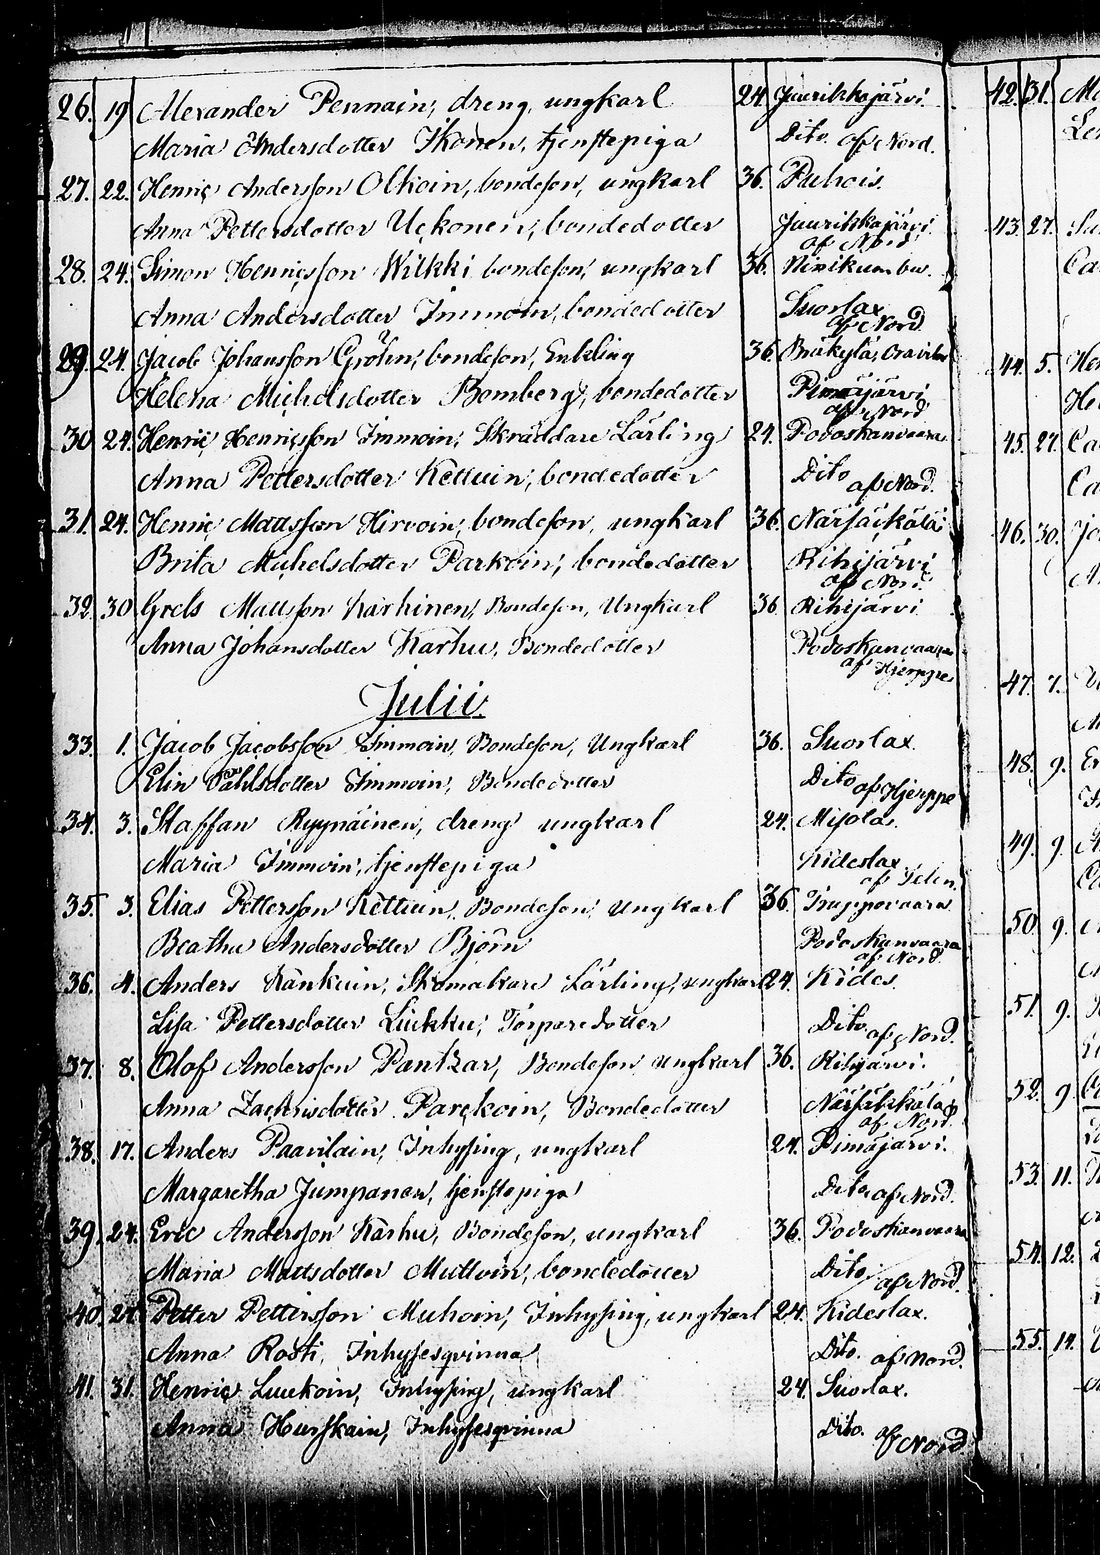 26. 19 Alexander Pennain, dreng, ungkarl 24. Juurikkajärvi.
Maria Andersdotter Ikonen, tjenstepiga Dito. af Nord.
27. 22. Henric Andersson Olkoin, bondeson, ungkarl 36. Puhois.
Anna Pettersdotter Uckonen, bondedotter Juurikkajärvi. af Nord.
28. 24. Simon Henricsson Wilkki bondeson, ungkarl 36.
Anna Andersdotter Immoin, bondedotter Suorlax af Nord.
29. 24. Jacob Johansson Gröhn, bondeson, Enkling 36.
Helena Michelsdotter Bomberg, bondedotter Pimäjärvi af Nord
30 24. Henric Henricsson Immoin, Skräddare Lärling 24. Podoskanvaara
Anna Pettersdotter Kettuin, bondedotter Dito af Nord.
31. 24. Henric Mattsson Hirvoin, bondeson, ungkarl 36. Närsäkälä
Brita Michelsdotter Parkoin, bondedotter Rihijärvi af Nord.
32. 30 Grels Mattsson Karhinen, Bondeson, Ungkarl 36. Rihijärvi
Anna Johansdotter Karhu, Bondedotter Podoskanvaara af Hjerppe
Julii.
33. 1. Jacob Jacobsson Immoin, Bondeson, Ungkarl 36. Suorlax.
Elin Påhlsdotter Immoin, Bondedotter Dito af Hjerppe
34. 3. Staffan Ryynäinen, dreng ungkarl 24. Misola.
Maria Immoin, tjenstepiga Kideslax.
35. 3. Elias Pettersson Kettuin, Bondeson, Ungkarl 36.
Beatha Andersdotter Björn Podoskanvaara af Nord.
36. 4. Anders Känkuin, Skomakare Lärling, ungkarl 24. Kides.
Lisa Pettersdotter Liukku, Torparedotter Dito. af Nord.
37. 8. Olof Andersson Pantzar, Bondeson ungkarl 36. Rihijärvi.
Anna Zachrisdotter Parckoin, Bondedotter Närsäkälä af Nord.
38. 17. Anders Paavilain, Inhysing, ungkarl 24. Pimäjärvi.
Margaretha Jumpanen, tjenstepiga Dito af Nord.
39. 24. Eric Andersson Karhu, Bondeson, ungkarl 36. Podoskanvaara
Maria Mattsdotter Muttoin, bondedotter Dito af Nord.
40. Petter Pettersson Muhoin, Inhysing, ungkarl 24. Kideslax.
Anna Rosti, Inhysesqvinna Dito. af Nord.
41. 31. Henric Luukoin, Inhysing, ungkarl 24. Suorlax.
Anna Hurskain, Inhysesqvinna Dito. af Nord
42. 31.
43. 27.
44. 5.
45. 27.
46. 30.
47. 7.
48. 9.
49. 9.
50. 9.
51. 9.
52. 9
53. 11.
54. 12.
55. 14.